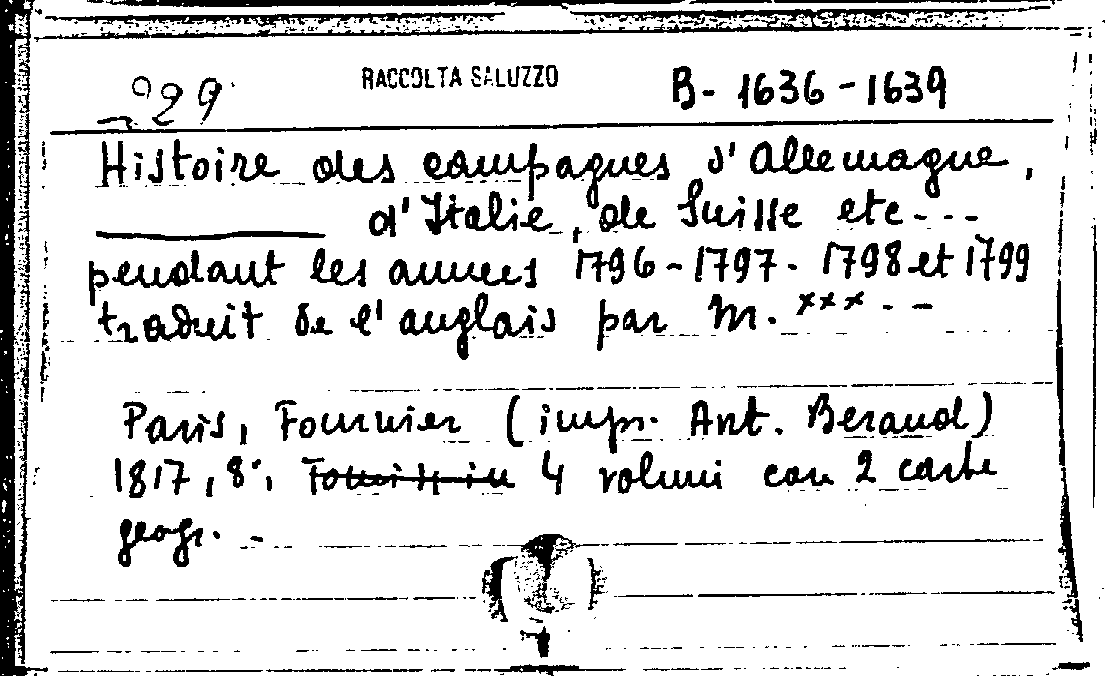 29 RACCOLTA SALUZZO B- 1636-1639
Histoire des campagnes d'Allemagne,
d'Italie, de Suisse etc---
pendant les annees 1796-1797- 1798 et 1799
traduit de l'anglais par M. *** - -
Paris, Fournier (impr. Ant. Beraud)
1817, 8°, 4 volumi con 2 carte
geogr. -